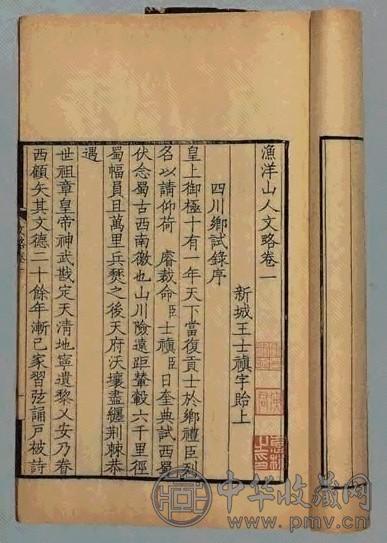 漁洋山人文略卷一
新城王士禛字貽上
四川鄉試錄序
皇上御極十有一年天下當復貢士於鄉禮臣列
名以請仰荷 睿裁命臣士禛臣日奎典試西蜀
伏念蜀古西南徼也山川險遠距輦轂六千里徑
蜀幅員且萬里兵燹之後天府沃壤盡纏荆棘恭
遇
世祖章皇帝神武戡定天清地寧遺黎乂安乃眷
西顧矣其文德二十餘年漸已家習弦誦戶被詩
文略卷一
中华收藏网
www.pmv.cn